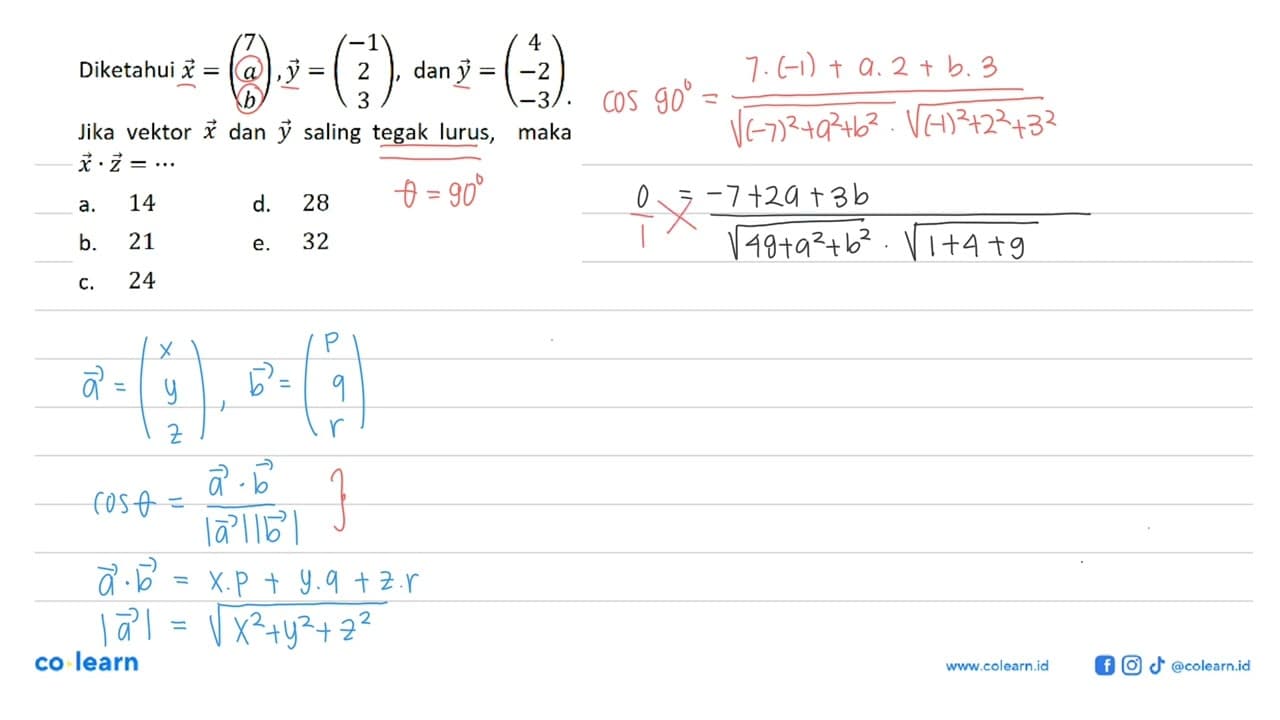 Diketahui x⃗ = (7 a b), y⃗ = (−1 2 3), dan y⃗ = (4 −2 −3).
Jika vektor x⃗ dan y⃗ saling tegak lurus, maka
x⃗ · z⃗ = ⋯
a. 14 d. 28
b. 21 e. 32
c. 24
θ = 90°
cos 90° = 7.(-1) + a.2 + b.3 / √(-7)²+a²+b² . √(-1)²+2²+3²
0/1 = -7+2a+3b / √49+a²+b² . √1+4+9
a⃗ = (x y z), b⃗ = (p q r)
cos θ = a⃗ · b⃗ / |a⃗||b⃗| }
a⃗ · b⃗ = x.p + y.q + z.r
|a⃗| = √x²+y²+z²
co learn
www.colearn.id @colearn.id